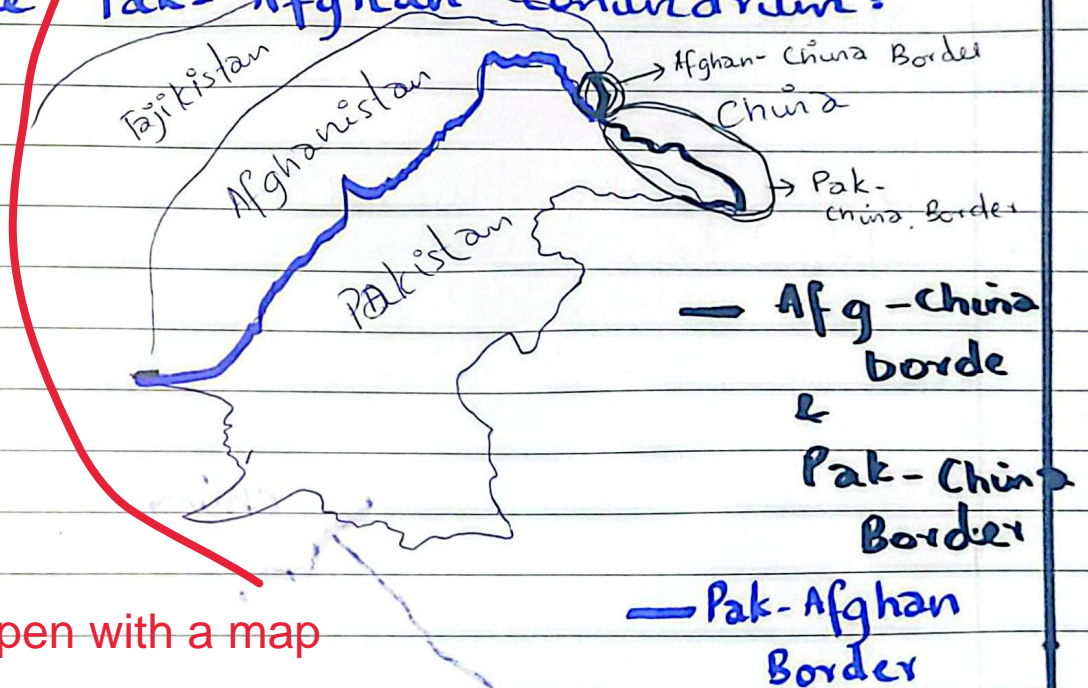 Pak-Afghan Conundrum:
Tajikistan
Afghanistan
Pakistan
Afghan-China Border
China
Pak-
China Border
Afg-China
borde
&
Pak-China
Border
Pak-Afghan
Border
pen with a map